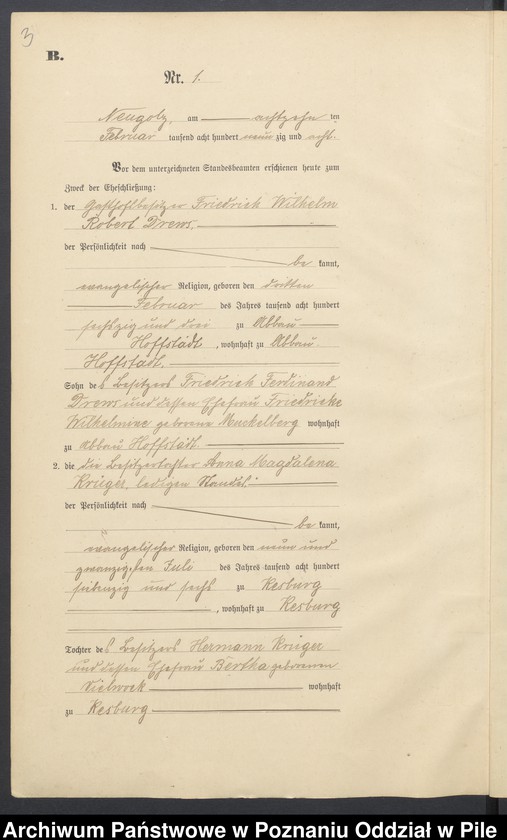 3
B.
Nr. 1.
Neugolz, am achtzehn ten
Februar tausend acht hundert neun zig und acht.
Vor dem unterzeichneten Standesbeamten erschienen heute zum
Zweck der Eheschließung:
1. der Gasthofbesitzer Friedrich Wilhelm
Robert Drews
der Persönlichkeit nach
be kannt,
evangelischer Religion, geboren den dritten
Februar des Jahres tausend acht hundert
sechszig und drei zu Abbau
Hoffstädt, wohnhaft zu Abbau
Hoffstädt.
Sohn des Besitzers Friedrich Ferdinand
Drews und dessen Ehefrau Friedricke
Wilhelmine geborene Muckelberg wohnhaft
zu Abbau Hoffstädt
2. die die Besitzertochter Anna Magdalena
Krüger, ledigen Standes.
der Persönlichkeit nach
be kannt,
evangelischer Religion, geboren den neun und
zwanzigsten Juli des Jahres tausend acht hundert
siebenzig und sechs zu Kesburg
, wohnhaft zu Kesburg
Tochter des Besitzers Hermann Krüger
und dessen Ehefrau Bertha geborenen
wohnhaft
zu Kesburg
Archiwum Państwowe w Poznaniu Oddział w Pile